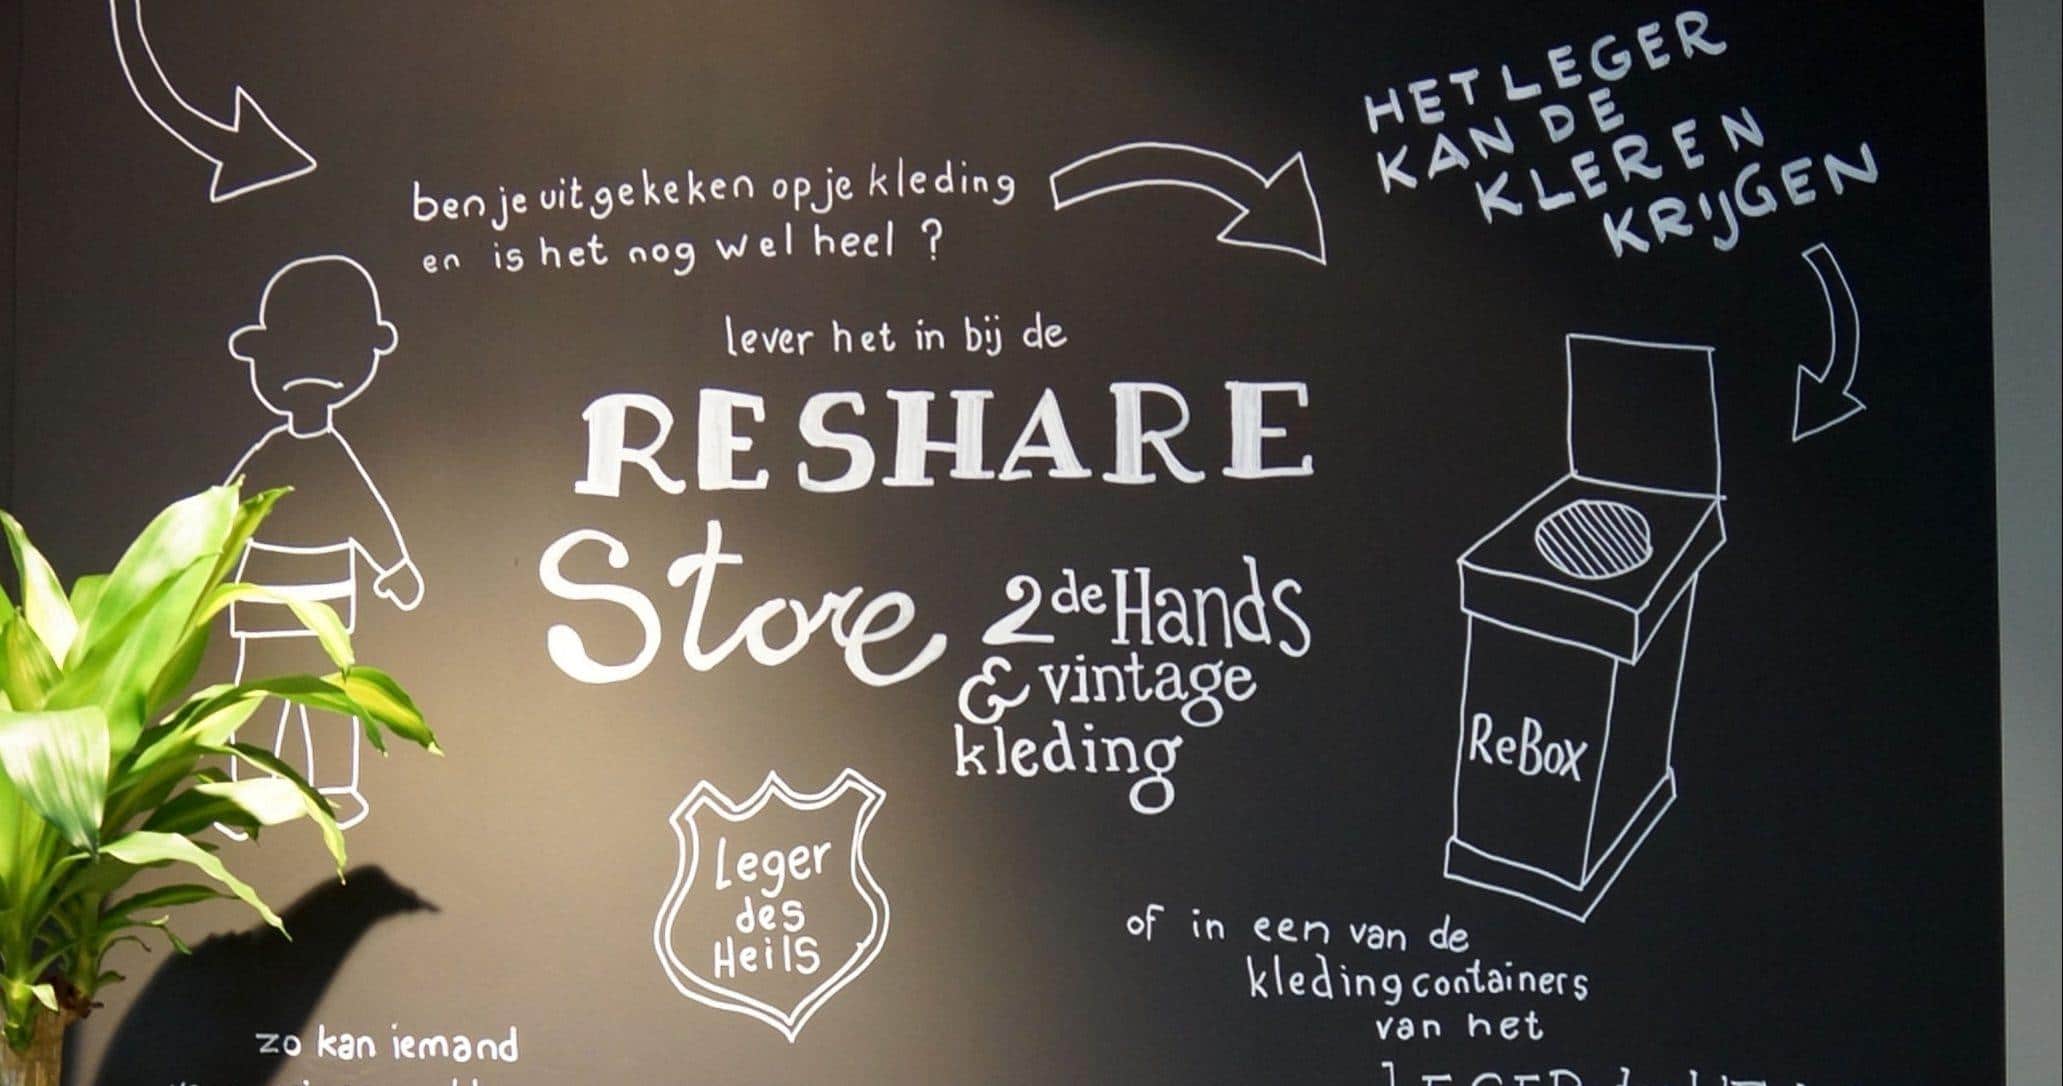 ben je uitgekeken op je kleding
en is het nog wel heel ?
HET LEGER
KAN DE
KLEREN
KRIJGEN
lever het in bij de
RESHARE
Store
2de Hands
& vintage
kleding
ReBox
Leger
des
Heils
of in een van de
kledingcontainers
van het
zo kan iemand